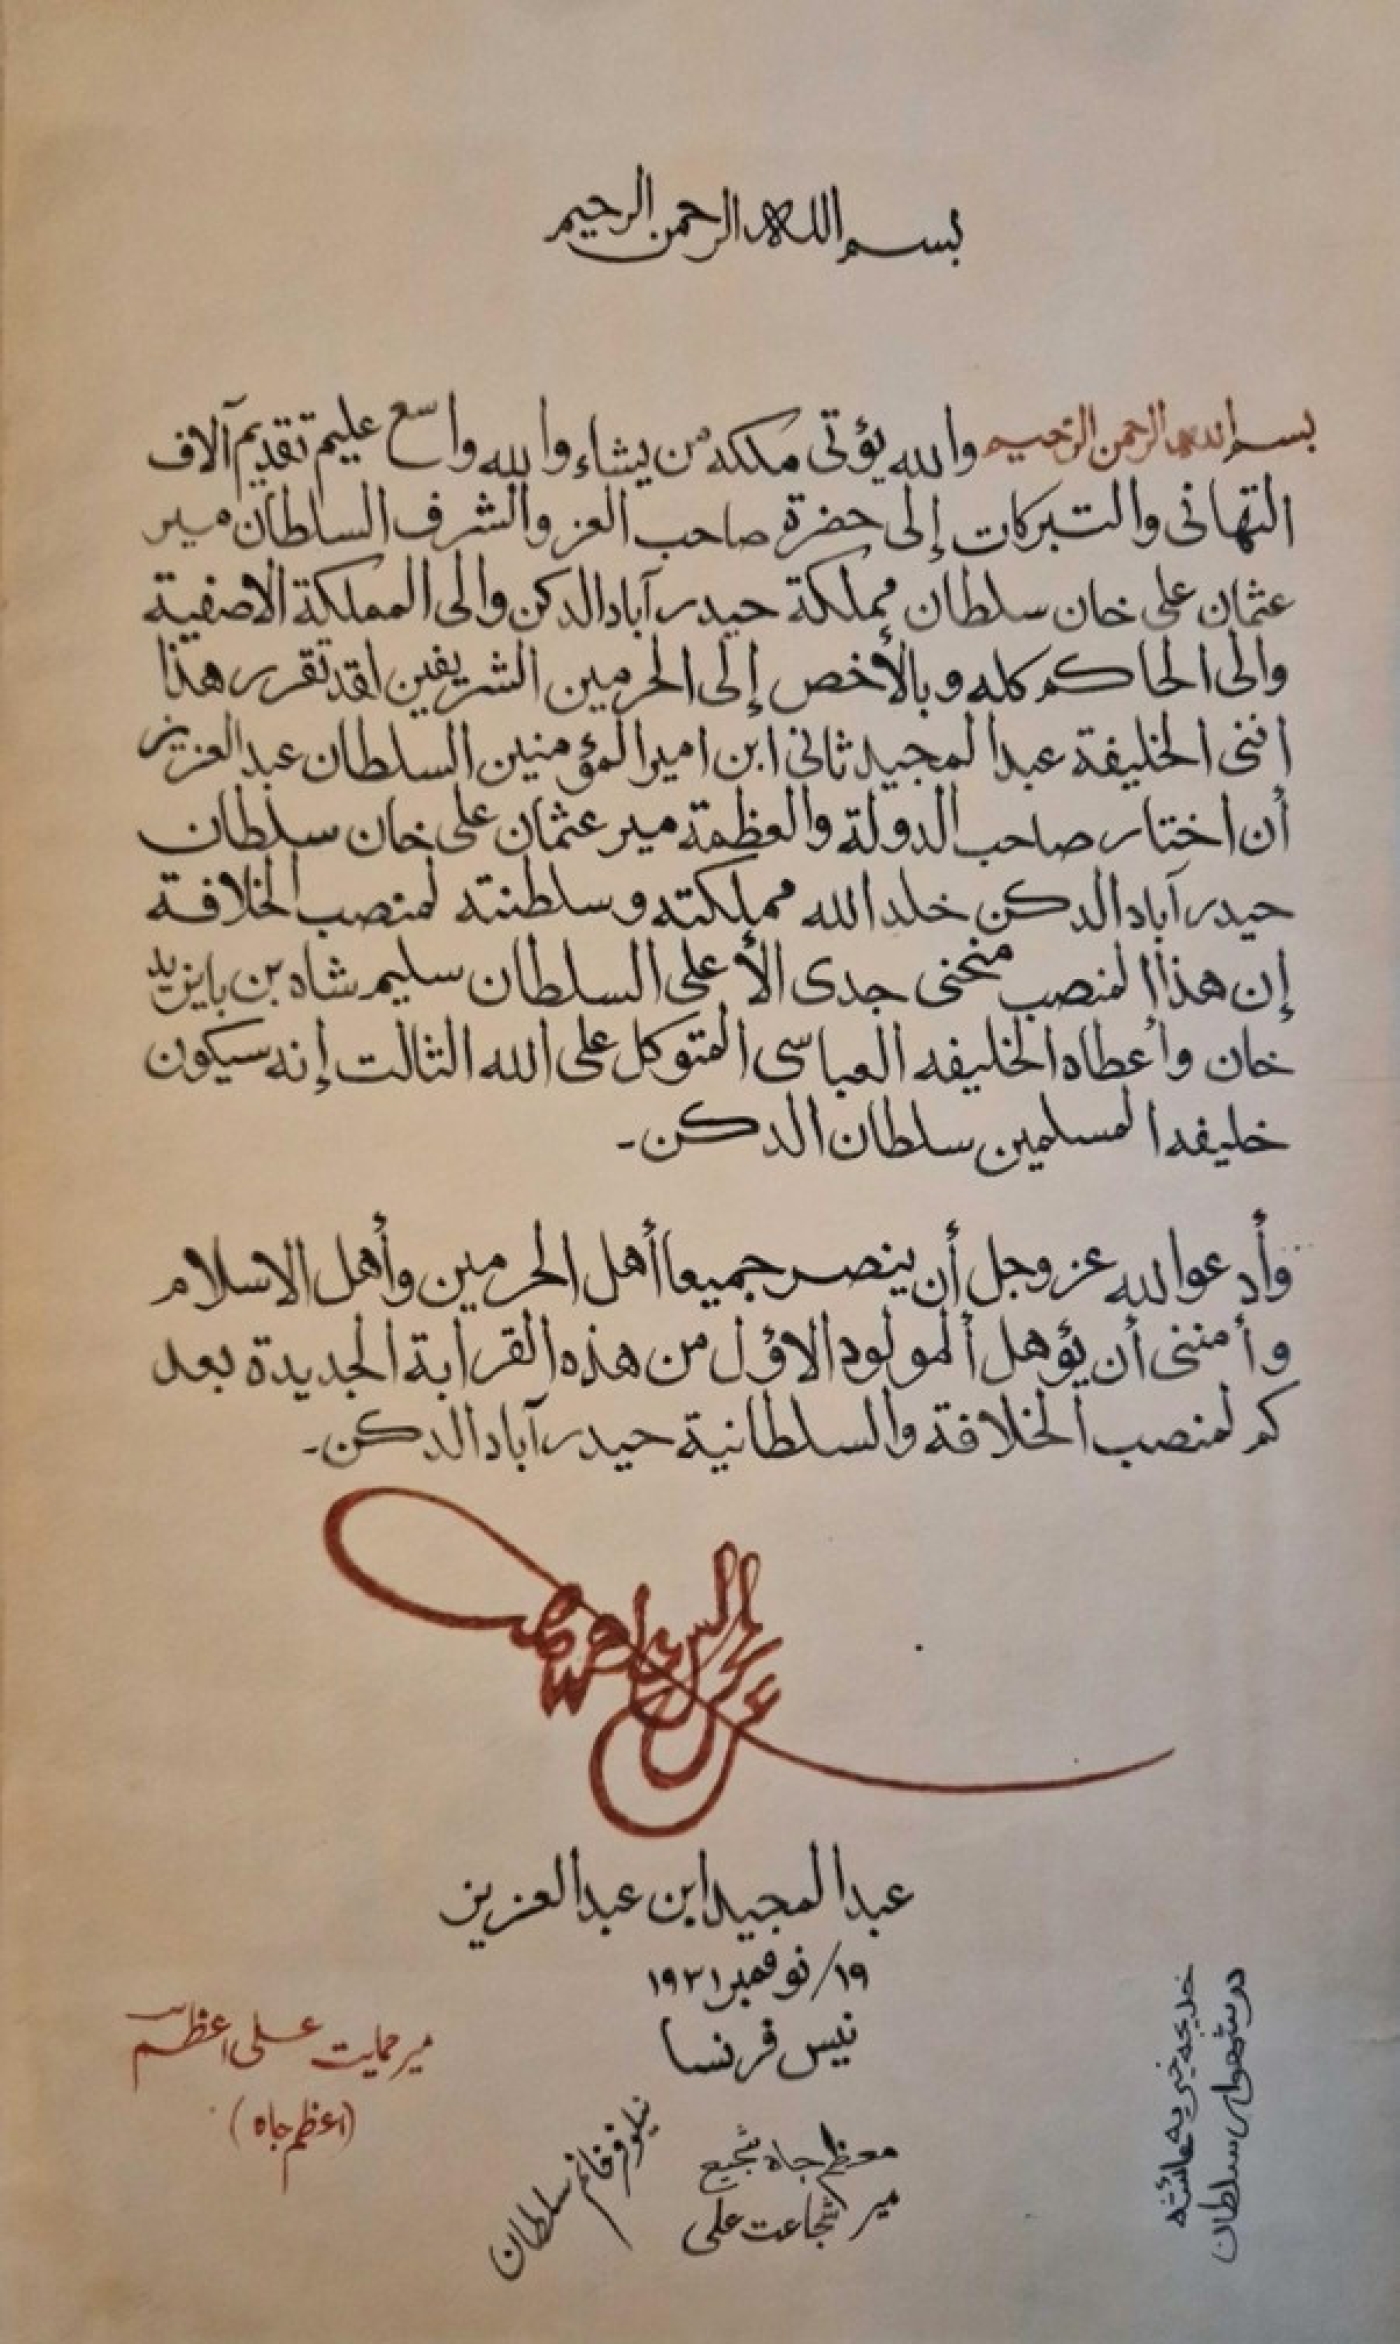 بسم الله الرحمن الرحيم
بسم الله الرحمن الرحيم والله يؤتى ملكه من يشاء والله واسع عليم تقديم آلاف
التهانى والتبركات إلى حضرة صاحب العز والشرف السلطان مير
عثمان على خان سلطان مملكة حيدر آباد الدكن والى المملكة الاصفية
والى الحاكم كله وبالأخص إلى الحرمين الشريفين لقد تقرر هذا
اننى الخليفة عبد المجيد ثانى ابن امير المؤمنين السلطان عبد العزيز
أن اختار صاحب الدولة والعظمة مير عثمان على خان سلطان
حيدر آباد الدكن خلد الله مملكته وسلطنته لمنصب الخلافة
إن هذا المنصب منحنى جدى الأعلى السلطان سليم شاه بن بايزيد
خان وأعطاه الخليفه العباسى المتوكل على الله الثالت إنه سيكون
خليفه المسلمين سلطان الدكن۔
وأدعو الله عز وجل أن ينصر جميعا أهل الحرمين وأهل الاسلام
وأمننى أن يؤهل ألمولود الاؤل من هذه القرابة الجديدة بعد
كم لمنصب الخلافة والسلطانية حيدر آباد الدكن۔
عبد المجيد ابن عبد العزيز
١٩/نوفمبر ١٩٣١
نيس فرنسا
مير حمايت على اعظم
(اعظم جاه)
نيلوفر خانم سلطان
معظم جاه شجيع
مير شجاعت على
خديجه خيريه عائشه
درشهوار سلطان